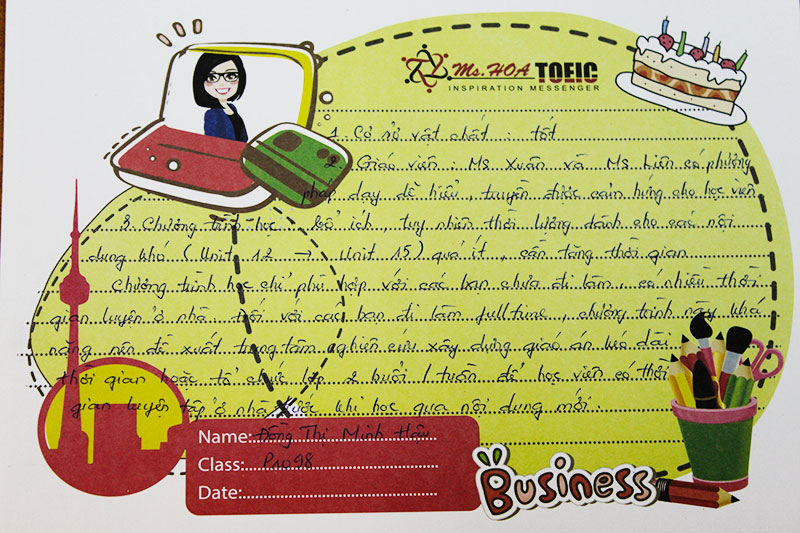 Ms.HOA TOEIC
INSPIRATION MESSENGER
1. Cơ sở vật chất : tốt
2. Giáo viên : Ms Xuân và Ms Liên có phương
pháp dạy dễ hiểu, truyền được cảm hứng cho học viên
3. Chương trình học bổ ích, tuy nhiên thời lượng dành cho các nội
dung khó (Unit 12 → Unit 15) quá ít, cần tăng thời gian
Chương trình học chỉ phù hợp với các bạn chưa đi làm, có nhiều thời
gian luyện ở nhà. Đối với các bạn đi làm fulltime, chương trình này khá
nặng nên đề xuất trung tâm nghiên cứu xây dựng giáo án kéo dài
thời gian hoặc tổ chức lớp 2 buổi / tuần để học viên có thời
gian luyện tập ở nhà trước khi học qua nội dung mới.
Name: Đồng Thị Minh Hậu
Class: P1098
Date:
Business